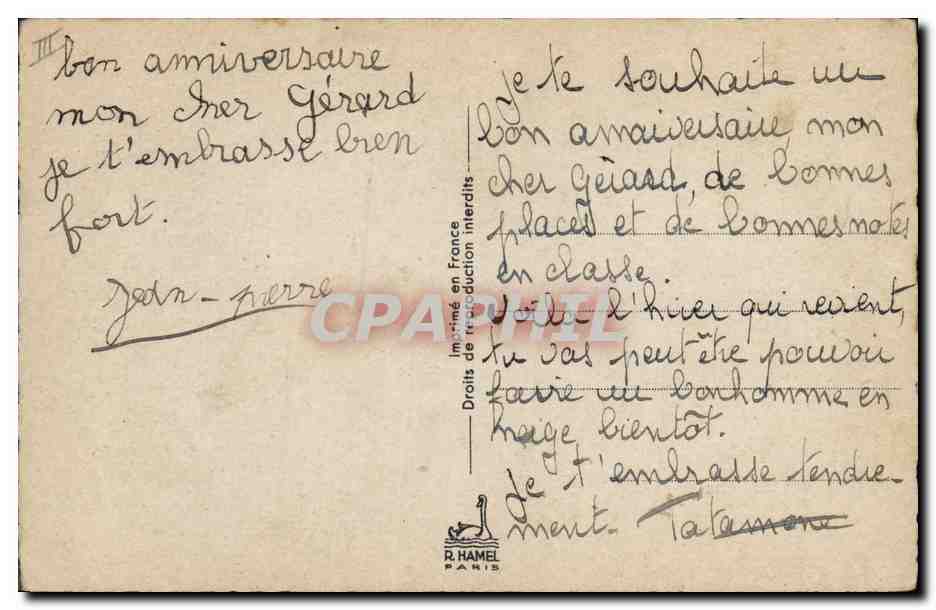 III
bon anniversaire
mon cher Gérard
je t'embrasse bien
fort.
Jean-pierre
Imprimé en France
Droits de reproduction interdits
R. HAMEL
PARIS
je te souhaite un
bon annaiversaire, mon
cher Gérard, de bonnes
places et de bonnes notes
en classe.
Voila l'hiver qui revient,
tu vas peut être pouvoir
faire un bonhomme en
neige, bientôt.
Je t'embrasse tendre-
ment - Tatamone
CPAPHIL